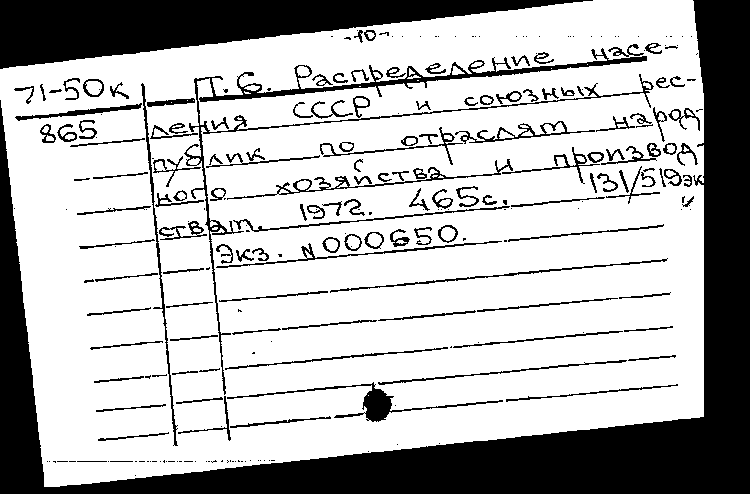 -10-
71-50к Т. 6. Распределение насе-
865 ления СССР и союзных рес-
публик по отраслям народ-
ного хозяйства и производ-
ствам. 1972. 465с. 131/519эк
Экз. N000650.